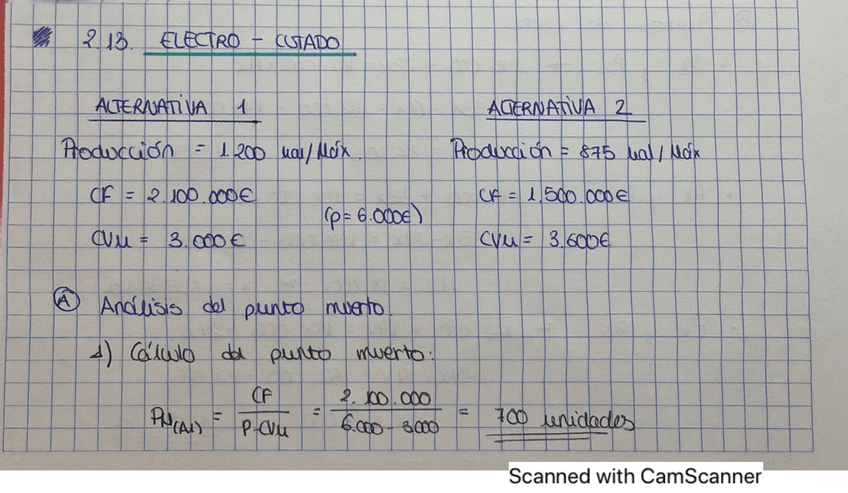 2.13. ELECTRO - CUTADO
ALTERNATIVA 1
ALTERNATIVA 2
Producción = 1.200 ual/Máx.
Producción = 875 ual/Máx
CF = 2.100.000€
CF = 1.500.000€
(p=6.000€)
CVu = 3.000€
CVu = 3.600€
A Análisis del punto muerto.
1) Cálculo del punto muerto:
PM(A1) = CF / P-CVu = 2.100.000 / 6.000 - 3000 = 700 unidades
Scanned with CamScanner